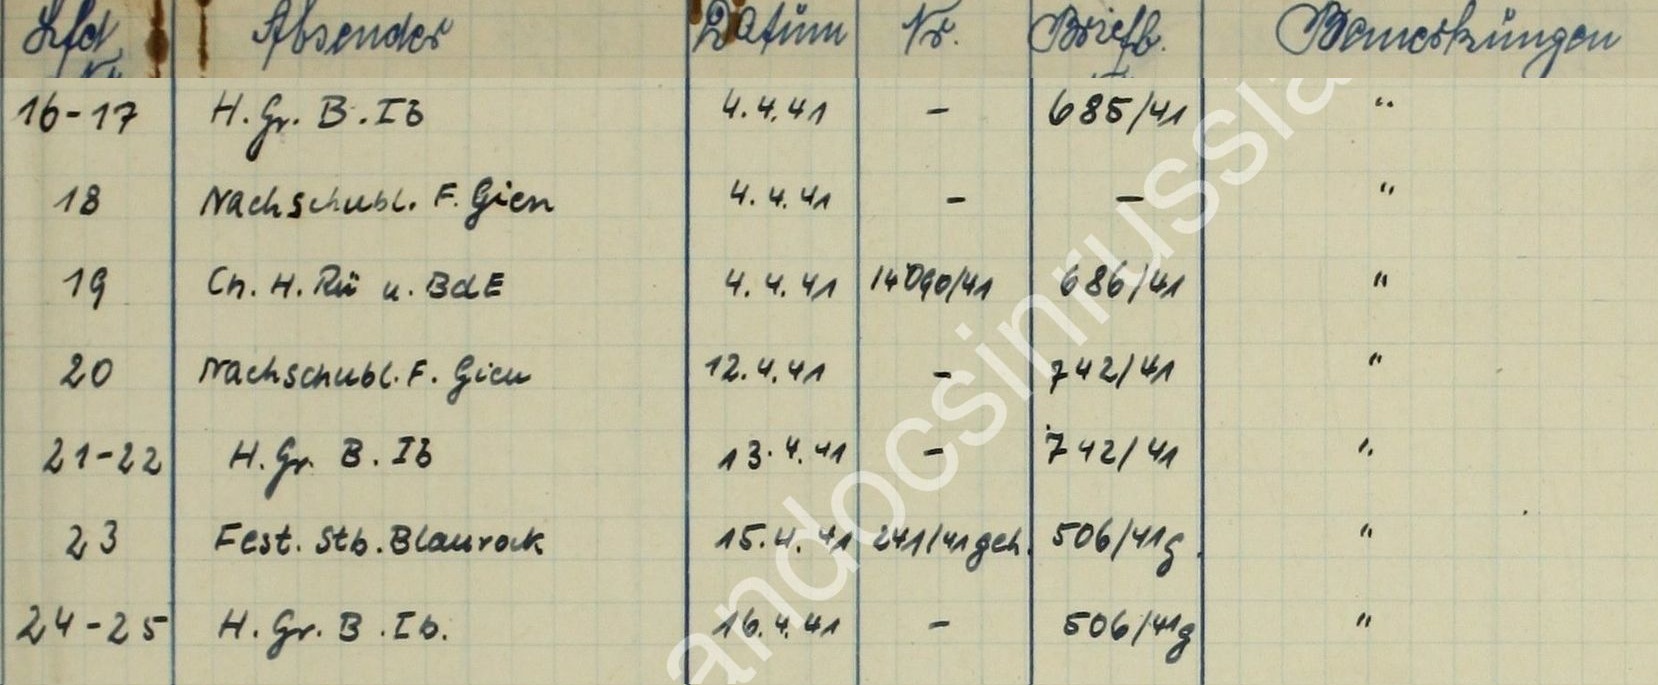 Lfd. Absender Datum Nr. Briefb. Bemerkungen
16-17 H. Gr. B. Ib 4.4.41 - 685/41 "
18 Nachschubl. F. Gien 4.4.41 - - "
19 Ch. H. Rü u. BdE 4.4.41 14090/41 686/41 "
20 Nachschubl. F. Gien 12.4.41 - 742/41 "
21-22 H. Gr. B. Ib 13.4.41 - 742/41 "
23 Fest. Stb. Blaurock 15.4.41 241/41 geh. 506/41g "
24-25 H. Gr. B. Ib. 16.4.41 - 506/41g "
andocsinrussia